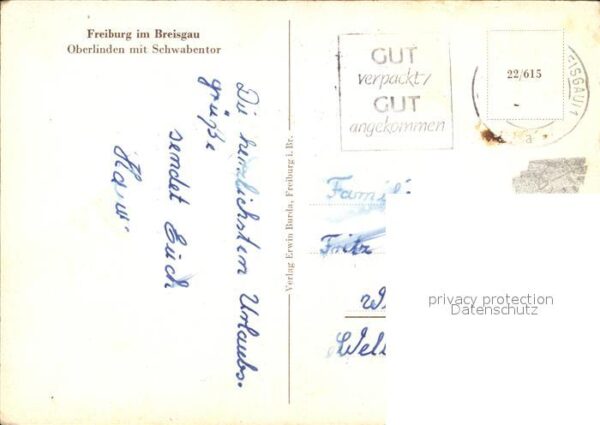 Freiburg im Breisgau
Oberlinden mit Schwabentor
Die herzlichsten Urlaubs-
grüße
sendet Euch
Verlag Erwin Burda, Freiburg i. Br.
GUT
verpackt/
GUT
angekommen
22/615
EISGAU 1
a
Famil
Fritz
W
privacy protection
Datenschutz